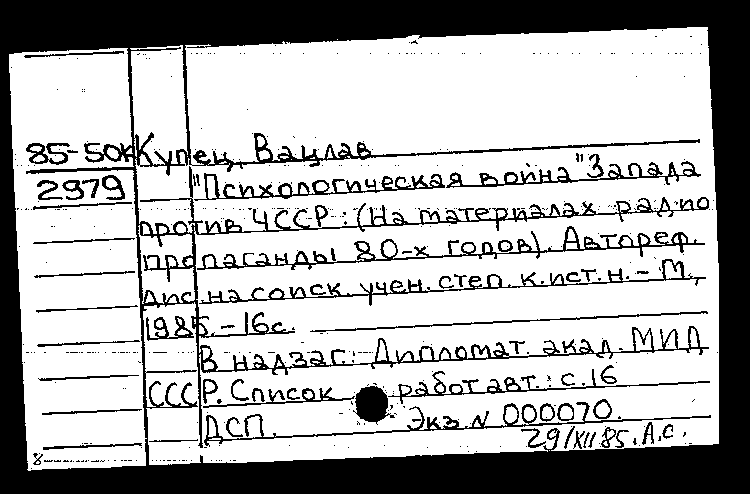 85-50к Купец, Вацлав
2979 "Психологическая война" Запада
против ЧССР: (На материалах радио
пропаганды 80-х годов). Автореф.
дис. на соиск. учен. степ. к.ист.н. - М.,
1985. - 16с.
В надзаг.: Дипломат. акад. МИД
СССР. Список работ авт.: с.16
ДСП. Экз N 000070.
29/XII 85. А.С.
8